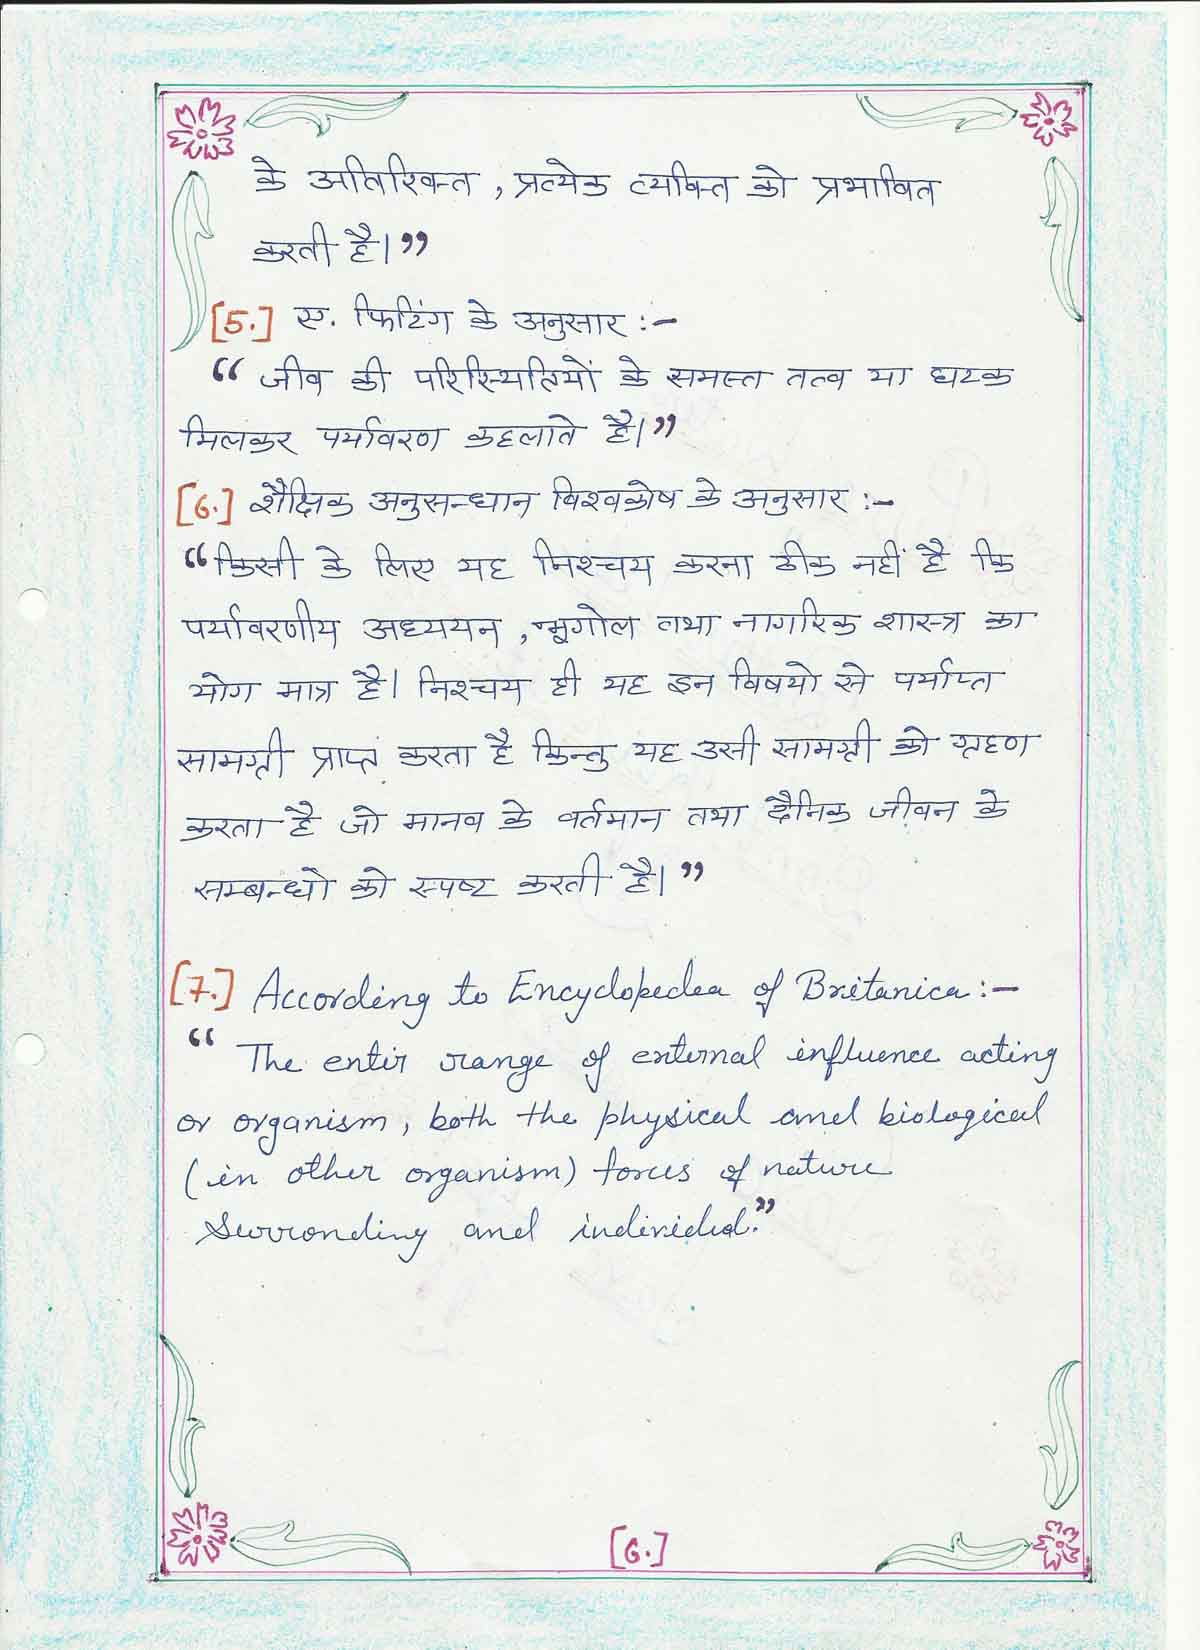 के अतिरिक्त, प्रत्येक व्यक्ति को प्रभावित
करती है।”
[5.] ए. फिटिंग के अनुसार :-
“ जीव की परिस्थितियों के समस्त तत्व या घटक
मिलकर पर्यावरण कहलाते है।”
[6.] शैक्षिक अनुसन्धान विश्वकोष के अनुसार :-
“किसी के लिए यह निश्चय करना ठीक नहीं है कि
पर्यावरणीय अध्ययन, भूगोल तथा नागरिक शास्त्र का
योग मात्र है। निश्चय ही यह इन विषयो से पर्याप्त
सामग्री प्राप्त करता है किन्तु यह उसी सामग्री को ग्रहण
करता है जो मानव के वर्तमान तथा दैनिक जीवन के
सम्बन्धो को स्पष्ट करती है।”
[7.] According to Encyclopedea of Britanica :-
“ The entir range of external influence acting
or organism, both the physical and biological
(in other organism) forces of nature
Surronding and individual.”
[6.]